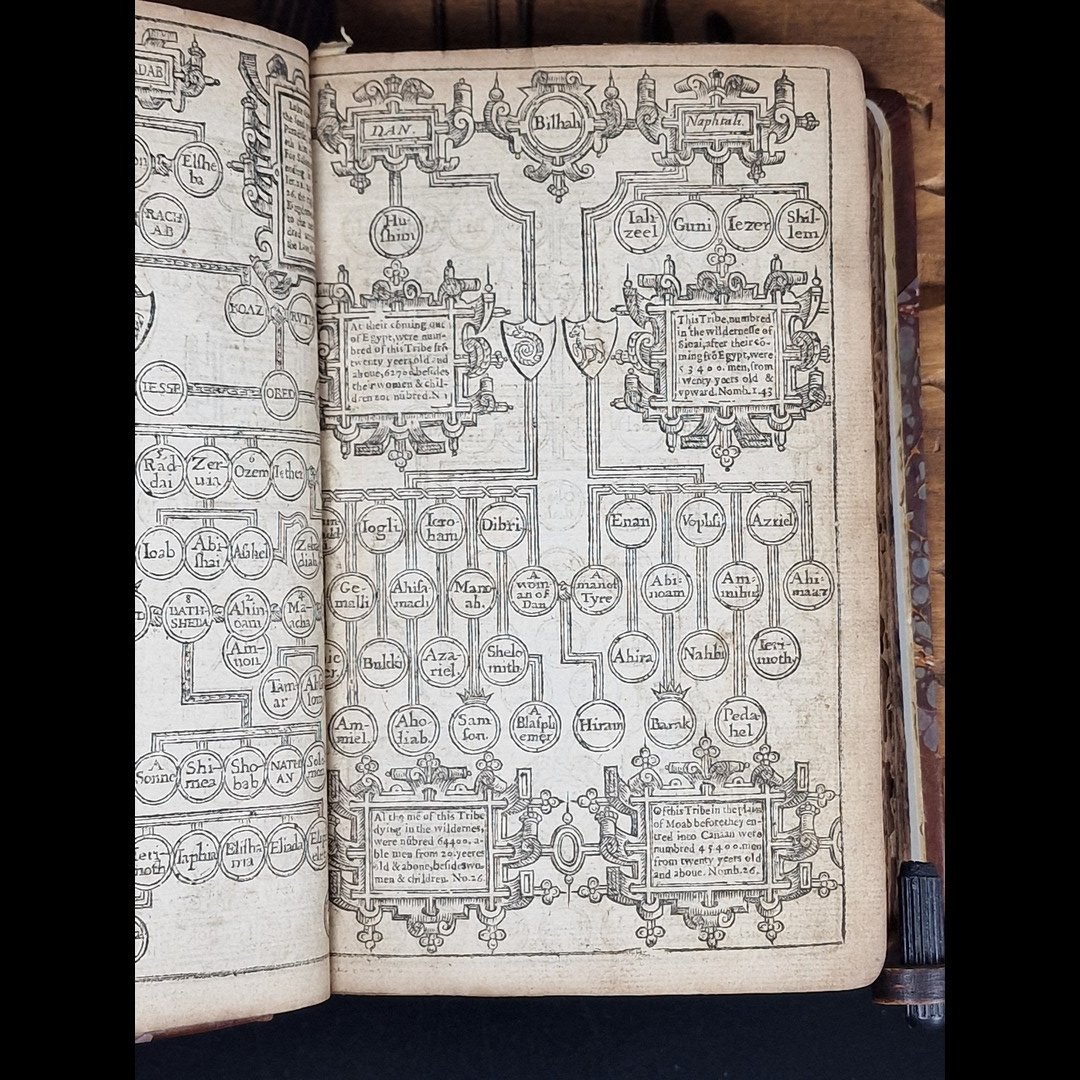 DAB
Elshe
ba
RACH
AB
BOAZ
RUT
IESSE
OBED
Rad
dai
Zer-
uia
Ozem
Iether
Ioab
Abi
shai
Ashel
Zeba
diah
8
BATH-
SHEBA
2
Ahin
oam
Ma-
acha
Am-
non
Tam
ar
A
Sonne
Shi-
mea
Sho-
bab
NATH
AN
Solo
mon
Iaphia
Elisha
ma
Eliada
DAN.
Bilhah
Naphtali.
Hu-
shim
Iah-
zeel
Guni
Iezer
Shil-
lem
At their cōming out
of Egypt, were num-
bred of this Tribe frō
twenty yeers old and
aboue, 62700. besides
their women & chil-
dren not nūbred. N. 1
This Tribe, numbred
in the wildernesse of
Sinai, after their cō-
ming frō Egypt, were
53400. men, from
twenty yeers old &
vpward. Nomb. 1.43
Iogli
Iero-
ham
Dibri
Enan
Vophsi
Azriel
Ge-
malli
Ahisa
mach
Mano
ah.
A
wom
an of
Dan
A
man of
Tyre
Abi-
noam
Am-
mihu
Ahi-
maaz
Bukki
Aza-
riel.
Shelo
mith.
Ahira
Nahbi
Ieri-
moth,
Am-
miel.
Aho-
liab.
Sam-
son.
A
Blasph
emer
Hiram
Barak
Peda-
hel
Al the mē of this Tribe
dying in the wildernes,
were nūbred 64400. a-
ble men from 20. yeeres
old & aboue, besides wo-
men & children. No. 26.
Of this Tribe in the plaine
of Moab before they en-
tred into Canaan were
numbred 45400. men
from twenty yeers old
and aboue. Nomb. 26.